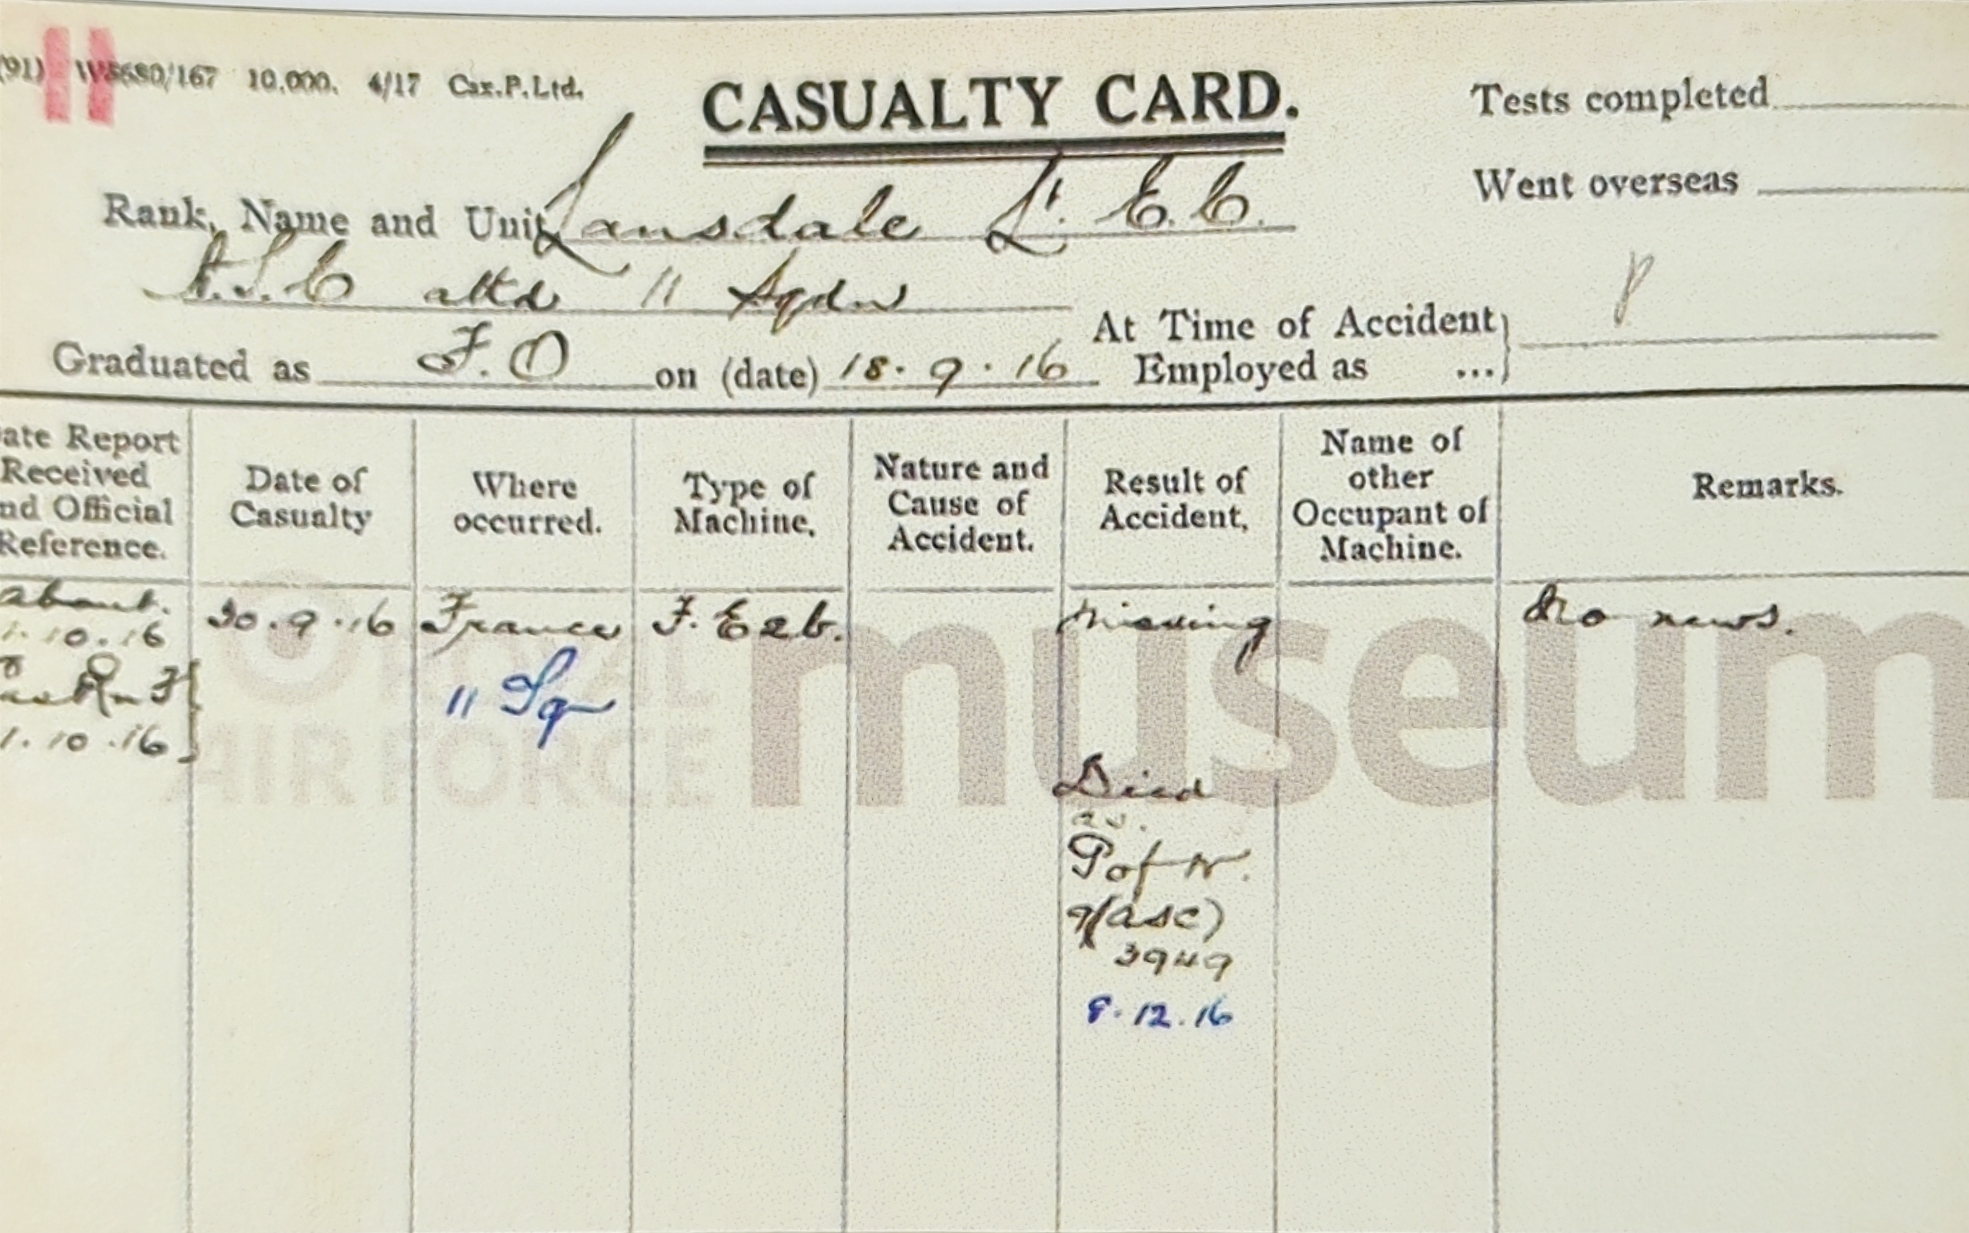 (91) W8680/167 10,000. 4/17 Cax.P.Ltd.
CASUALTY CARD.
Tests completed
Went overseas
Rank, Name and Unit Lansdale Lt. E.C.
A.S.C attd 11 Sqdn
At Time of Accident Employed as ... P
Graduated as F.O on (date) 18.9.16
ate Report
Received
nd Official
Reference.
Date of
Casualty
Where
occurred.
Type of
Machine.
Nature and
Cause of
Accident.
Result of
Accident.
Name of
other
Occupant of
Machine.
Remarks.
about. 30.9.16 France F.E2b. Missing No news.
1.10.16
11 Sq
1.10.16
Died
as
P of W.
9(asc)
3949
8.12.16
ROYAL
AIR FORCE
museum